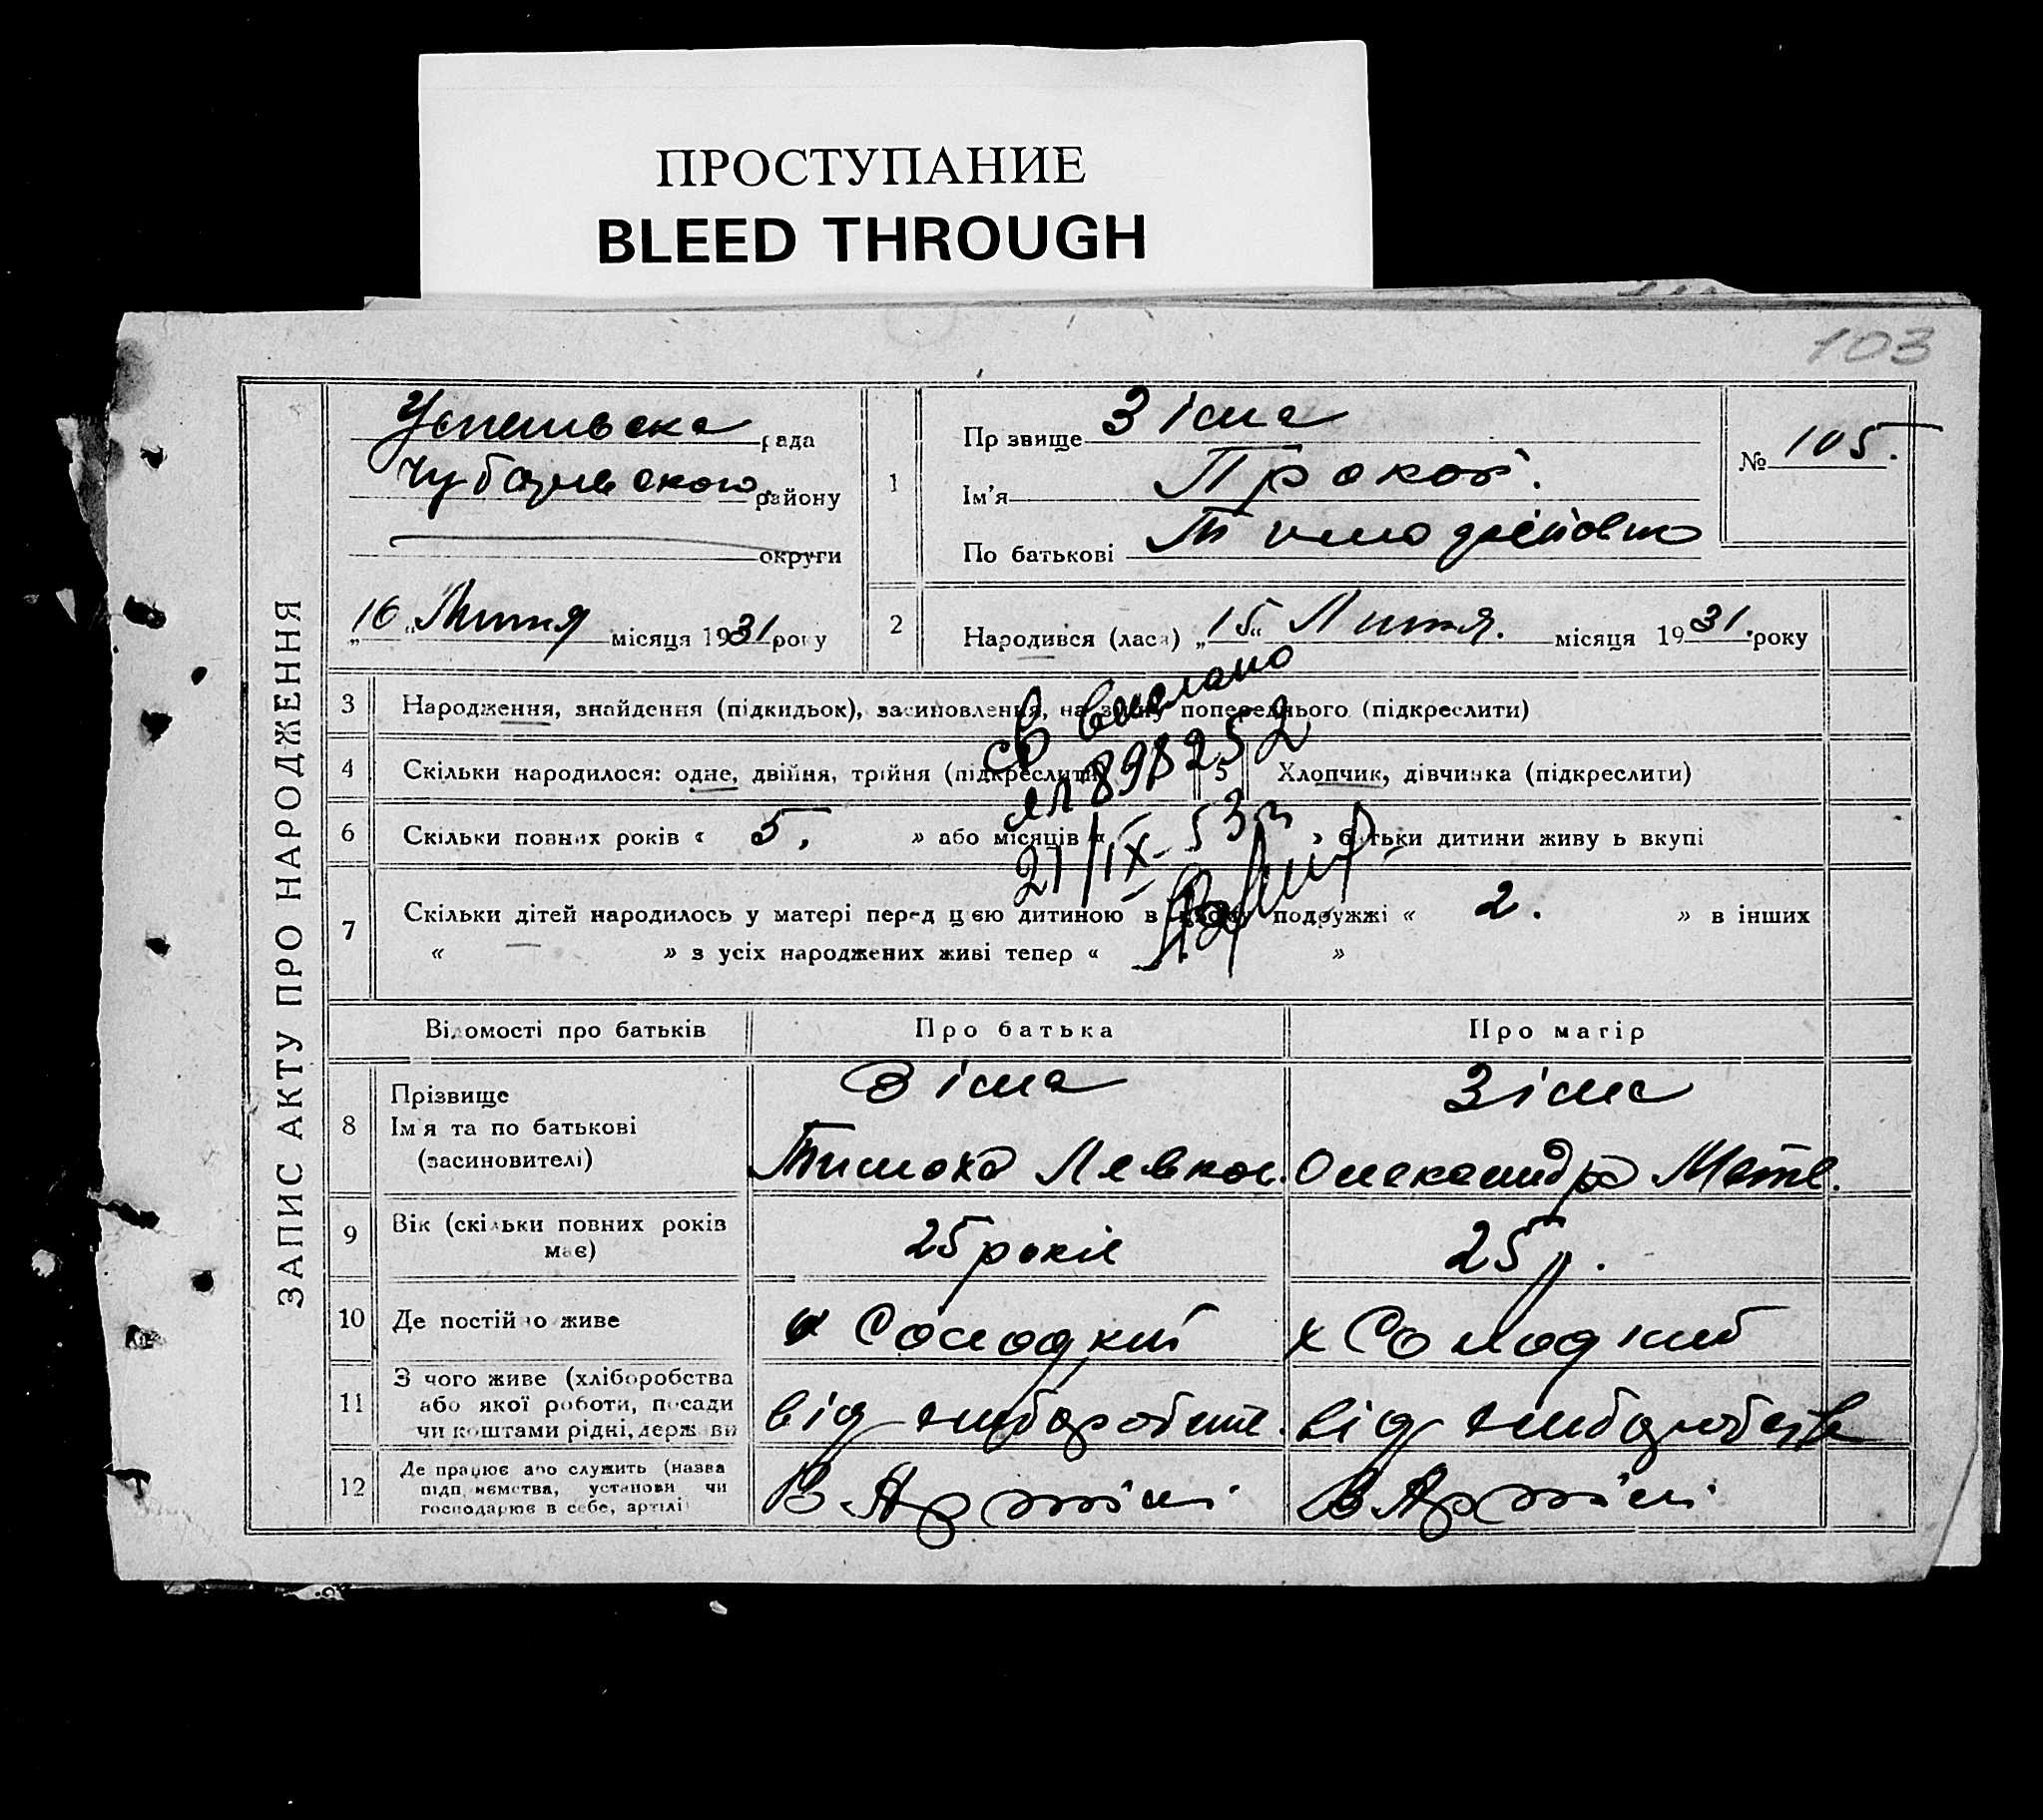 ПРОСТУПАНИЕ
BLEED THROUGH
103
ЗАПИС АКТУ ПРО НАРОДЖЕННЯ
рада
району
округи
„16“ Липня місяця 1931 року
1
Прзвище Зіма
Ім'я Прокоп.
По батькові
№ 105.
2
Народився (лася) „15“ Липня. місяця 1931. року
3
Народження, знайдення (підкидьок), засиновлення, на зміну попереднього (підкреслити)
4
Скільки народилося: одне, двійня, трійня (підкреслити)
5
Хлопчик, дівчинка (підкреслити)
6
Скільки повних років « 5. » або місяців « » батьки дитини живу ь вкупі
7
Скільки дітей народилось у матері перед цією дитиною в цьому подружжі « 2. » в інших
« — » з усіх народжених живі тепер « »
видано
21/IX-53
Відомості про батьків
Про батька
Про матір
8
Прізвище
Ім'я та по батькові
(засиновителі)
Зіма
Зіма
Тимоха Левков.
Олександра Матв.
9
Вік (скільки повних років
має)
25 років
25 р.
10
Де постійно живе
х Солодкий
х Солодкий
11
З чого живе (хліборобства
або якої роботи, посади
чи коштами рідні, держави
від хлібороб
від хлібороб
12
Де працює або служить (назва
підпиємства, установи чи
господарює в себе, артілі)
В Артілі
В Артілі